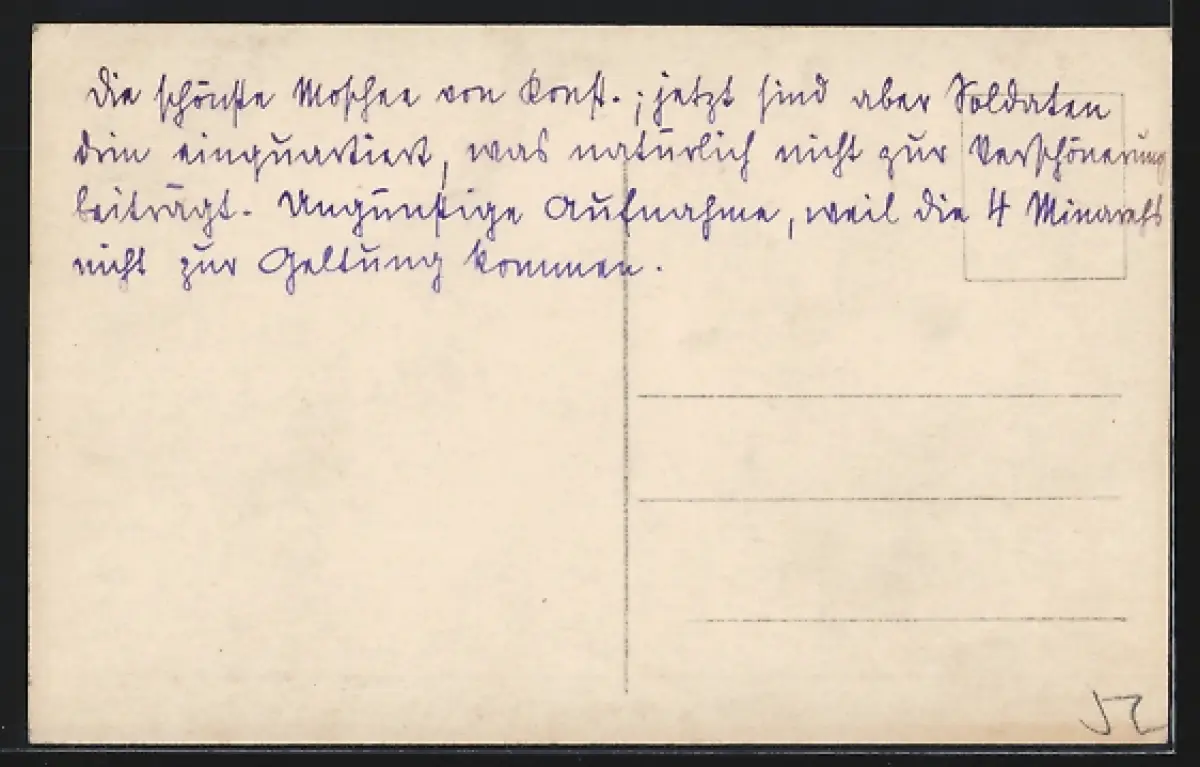 Die schönste Moschee von Konst.; jetzt sind aber Soldaten
drin einquartiert, was natürlich nicht zur Verschönerung
beiträgt. Ungünstige Aufnahme, weil die 4 Minarehs
nicht zur Geltung kommen.